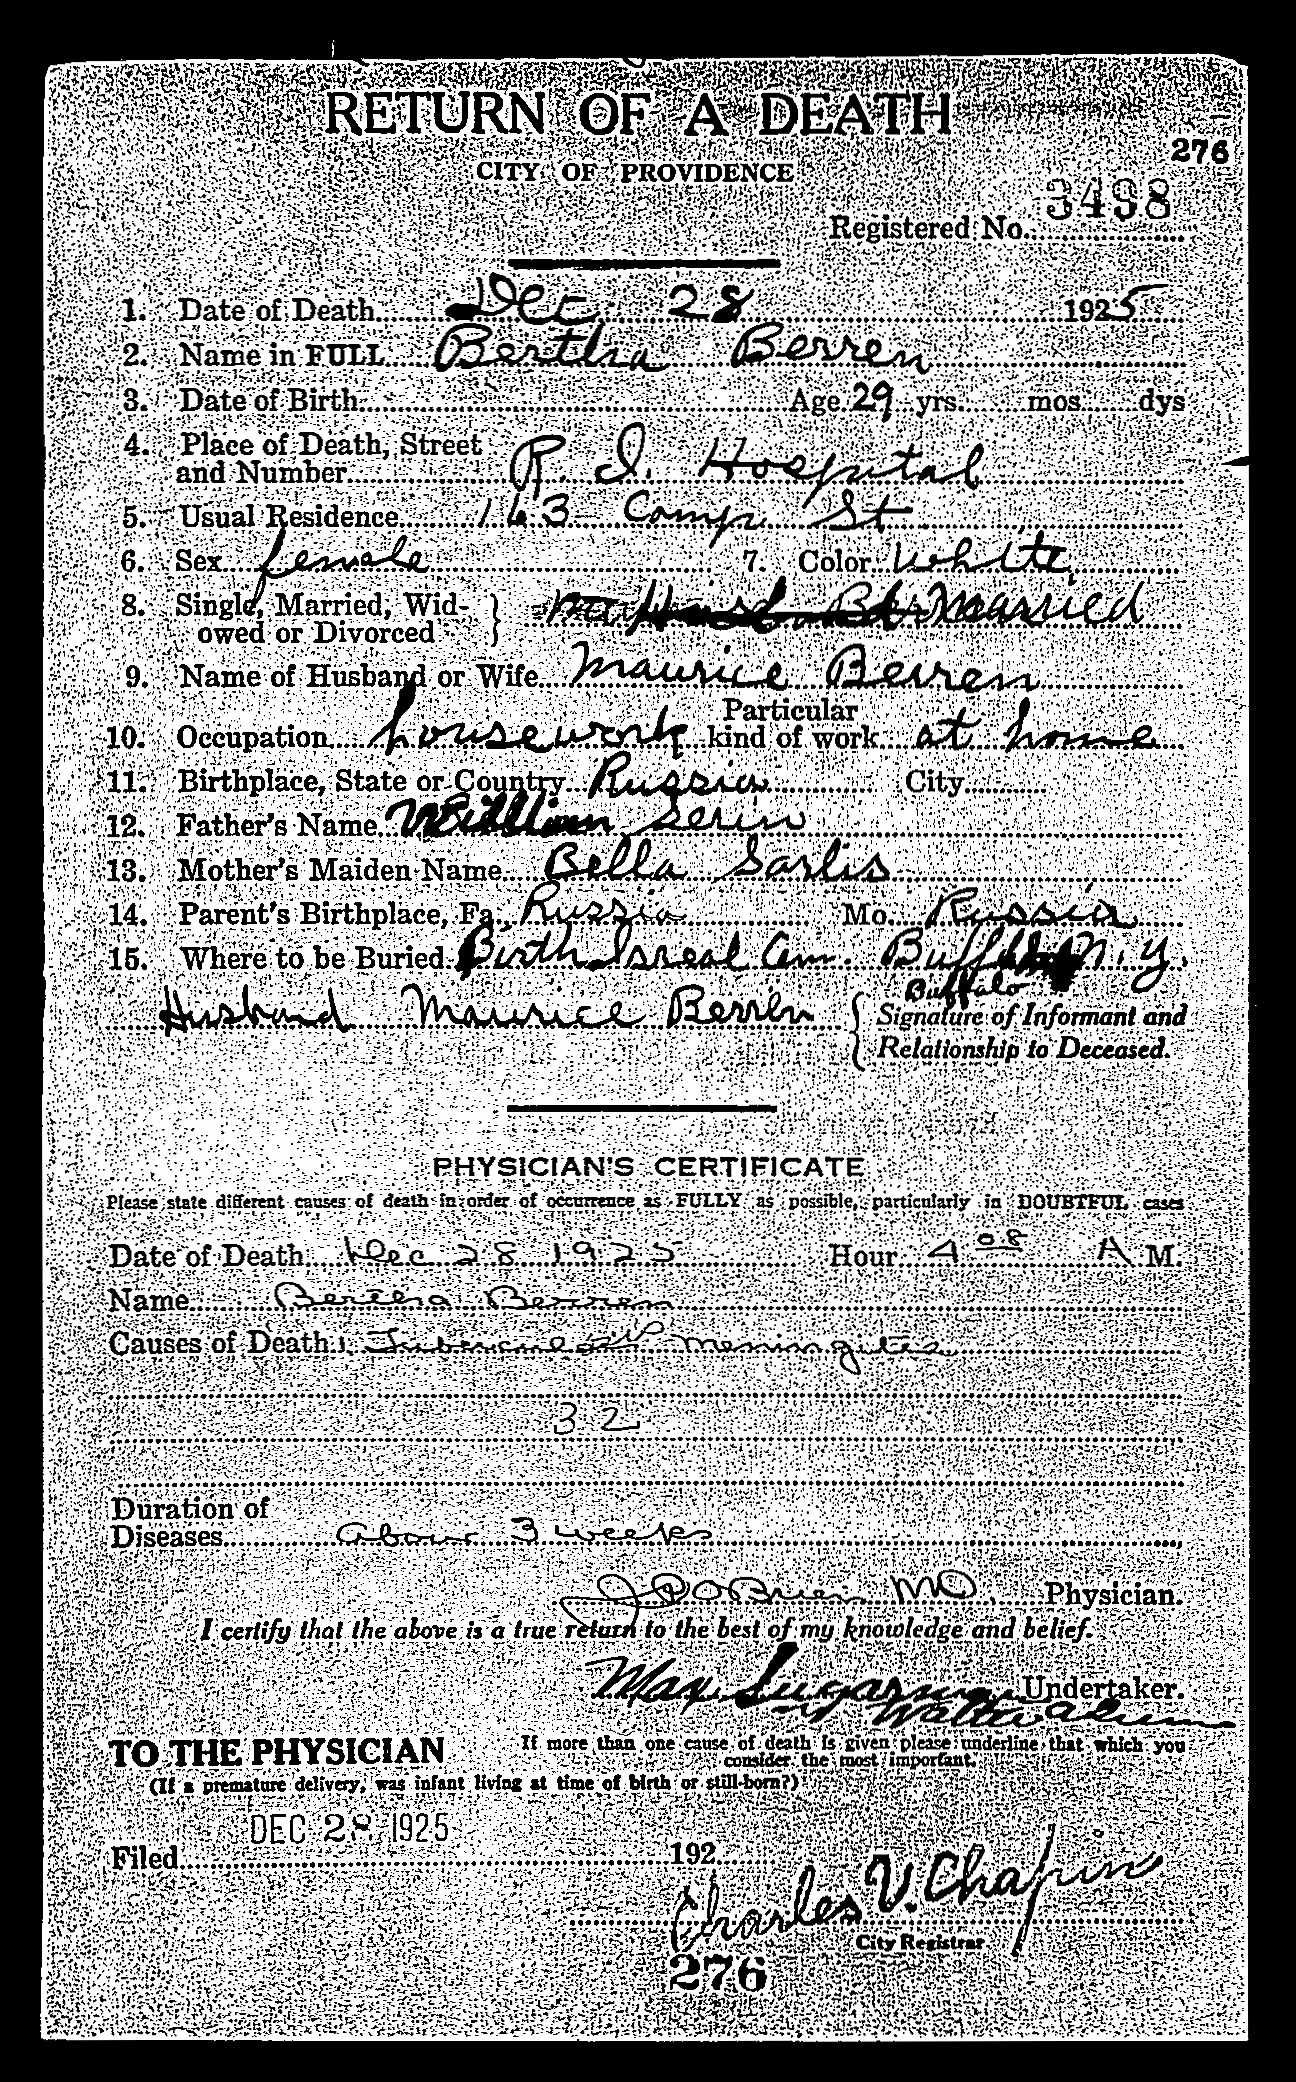 RETURN OF A DEATH
276
CITY OF PROVIDENCE
Registered No. 3498
1. Date of Death Dec 28 1925
2. Name in FULL Bertha Berren
3. Date of Birth Age 29 yrs mos dys
4. Place of Death, Street
and Number R. I. Hospital
5. Usual Residence 163 Camp St
6. Sex female 7. Color White
8. Single, Married, Wid-
owed or Divorced } Married
9. Name of Husband or Wife Maurice Berren
10. Occupation housework Particular
kind of work at home
11. Birthplace, State or Country Russia City
12. Father's Name William
13. Mother's Maiden Name Bella Sarlis
14. Parent's Birthplace, Fa. Russia Mo. Russia
15. Where to be Buried Birth Isreal Cem. N.Y.
Buffalo
Husband Maurice Berren { Signature of Informant and
Relationship to Deceased.
PHYSICIAN'S CERTIFICATE
Please state different causes of death in order of occurrence as FULLY as possible, particularly in DOUBTFUL cases
Date of Death Dec 28 1925 Hour 4 08 A M.
Name Bertha Berren
Causes of Death Tuberculosis meningitis
32
Duration of
Diseases about 3 weeks
O'Brien MD. Physician.
I certify that the above is a true return to the best of my knowledge and belief.
Max Sugarman Undertaker.
TO THE PHYSICIAN If more than one cause of death is given please underline that which you
consider the most important.
(If a premature delivery, was infant living at time of birth or still-born?)
DEC 28 1925
Filed 192
Charles V. Chapin
City Registrar
276